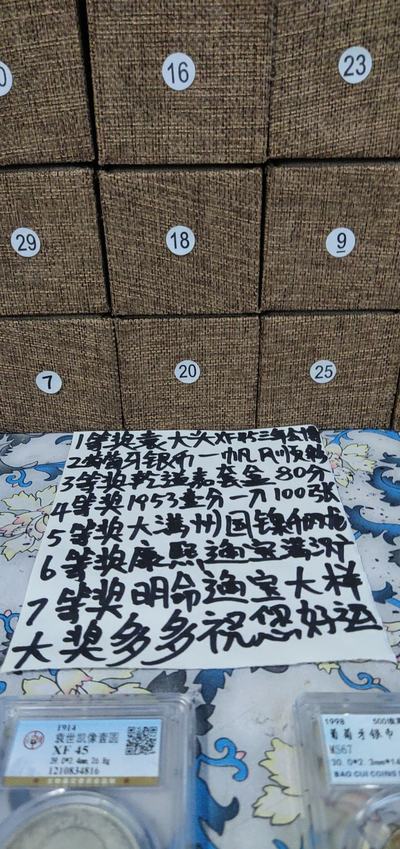 0
16
23
29
18
9
7
20
25
1等奖袁大头XF45三年公博
2等奖葡牙银币一帆风顺
3等奖乾隆 套盒80分
4等奖1953壹分一刀100张
5等奖大满州国镍币
6等奖康熙通宝满汉
7等奖明命通宝大样
大奖多多祝您好运
1914
袁世凯像壹圆
XF 45
39.0*2.4mm 26.8g
1210834816
1998 500
葡萄牙银币
MS67
30.0*2.3mm*14
BAO CUI COINS